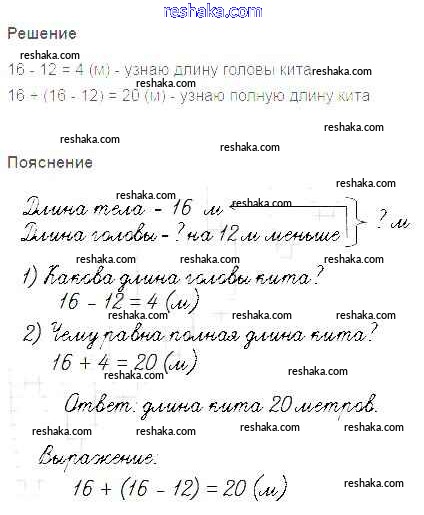 reshaka.com
Решение
reshaka.com
16 - 12 = 4 (м) - узнаю длину головы кита reshaka.com
reshaka.com
16 + (16 - 12) = 20 (м) - узнаю полную длину кита
reshaka.com
reshaka.com
reshaka.com
Пояснение
reshaka.com
reshaka.com
Длина тела - 16 м reshaka.com
Длина головы - ? на 12 м меньше } ? м
reshaka.com reshaka.com reshaka.com
1) Какова длина головы кита?
16 - 12 = 4 (м) reshaka.com
reshaka.com
2) Чему равна полная длина кита?
reshaka.com
16 + 4 = 20 (м) reshaka.com
reshaka.com
reshaka.com
Ответ: длина кита 20 метров.
reshaka.com reshaka.com reshaka.com
Выражение:
reshaka.com
16 + (16 - 12) = 20 (м)
reshaka.com reshaka.com